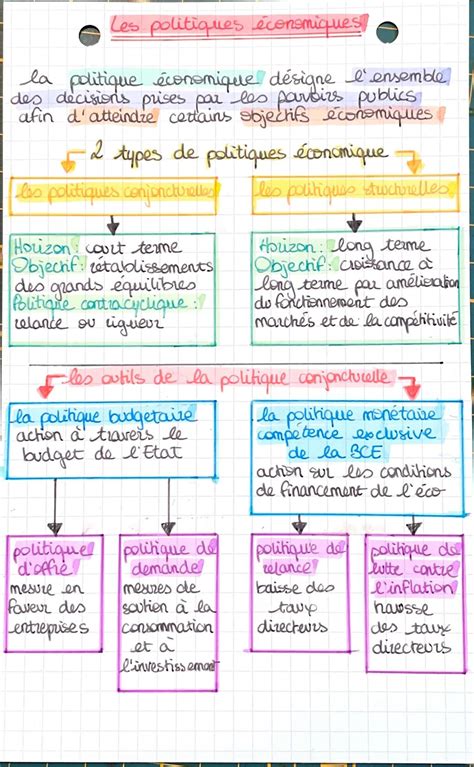 Les politiques économiques
La politique économique désigne l'ensemble
des décisions prises par les pouvoirs publics
afin d'atteindre certains objectifs économiques
2 types de politiques économique
les politiques conjoncturelles
Horizon : court terme
Objectif : rétablissements
des grands équilibres
Politique contracyclique :
relance ou rigueur
les politiques structurelles
Horizon : long terme
Objectif : croissance à
long terme par amélioration
du fonctionnement des
marchés et de la compétitivité
les outils de la politique conjoncturelle
la politique budgetaire
action à travers le
budget de l'Etat
la politique monétaire
compétence exclusive
de la BCE
action sur les conditions
de financement de l'éco
politique
d'offre
mesure en
faveur des
entreprises
politique de
demande
mesures de
soutien à la
consommation
et à
l'investissement
politique de
relance
baisse des
taux
directeurs
politique de
lutte contre
l'inflation
hausse
des taux
directeurs